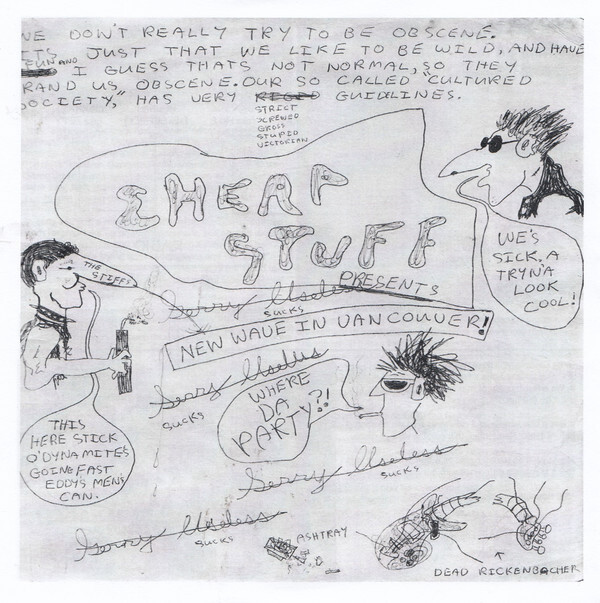 WE DON'T REALLY TRY TO BE OBSCENE.
ITS JUST THAT WE LIKE TO BE WILD, AND HAVE
FUN AND I GUESS THATS NOT NORMAL, SO THEY
BRAND US OBSCENE. OUR SO CALLED "CULTURED
SOCIETY," HAS VERY RIGID GUIDELINES.
STRICT
SCREWED
GROSS
STUPID
VICTORIAN
CHEAP
STUFF
PRESENTS
WE'S
SICK. A
TRYN'A
LOOK
COOL!
THE STIFFS
Gerry Useless
SUCKS
NEW WAVE IN VANCOUVER!
Gerry Useless
SUCKS
WHERE
DA
PARTY?!
THIS
HERE STICK
O'DYNAMITES
GOING FAST
EDDYS MENS
CAN.
Gerry Useless
SUCKS
Gerry Useless
SUCKS
ASHTRAY
DEAD RICKENBACHER